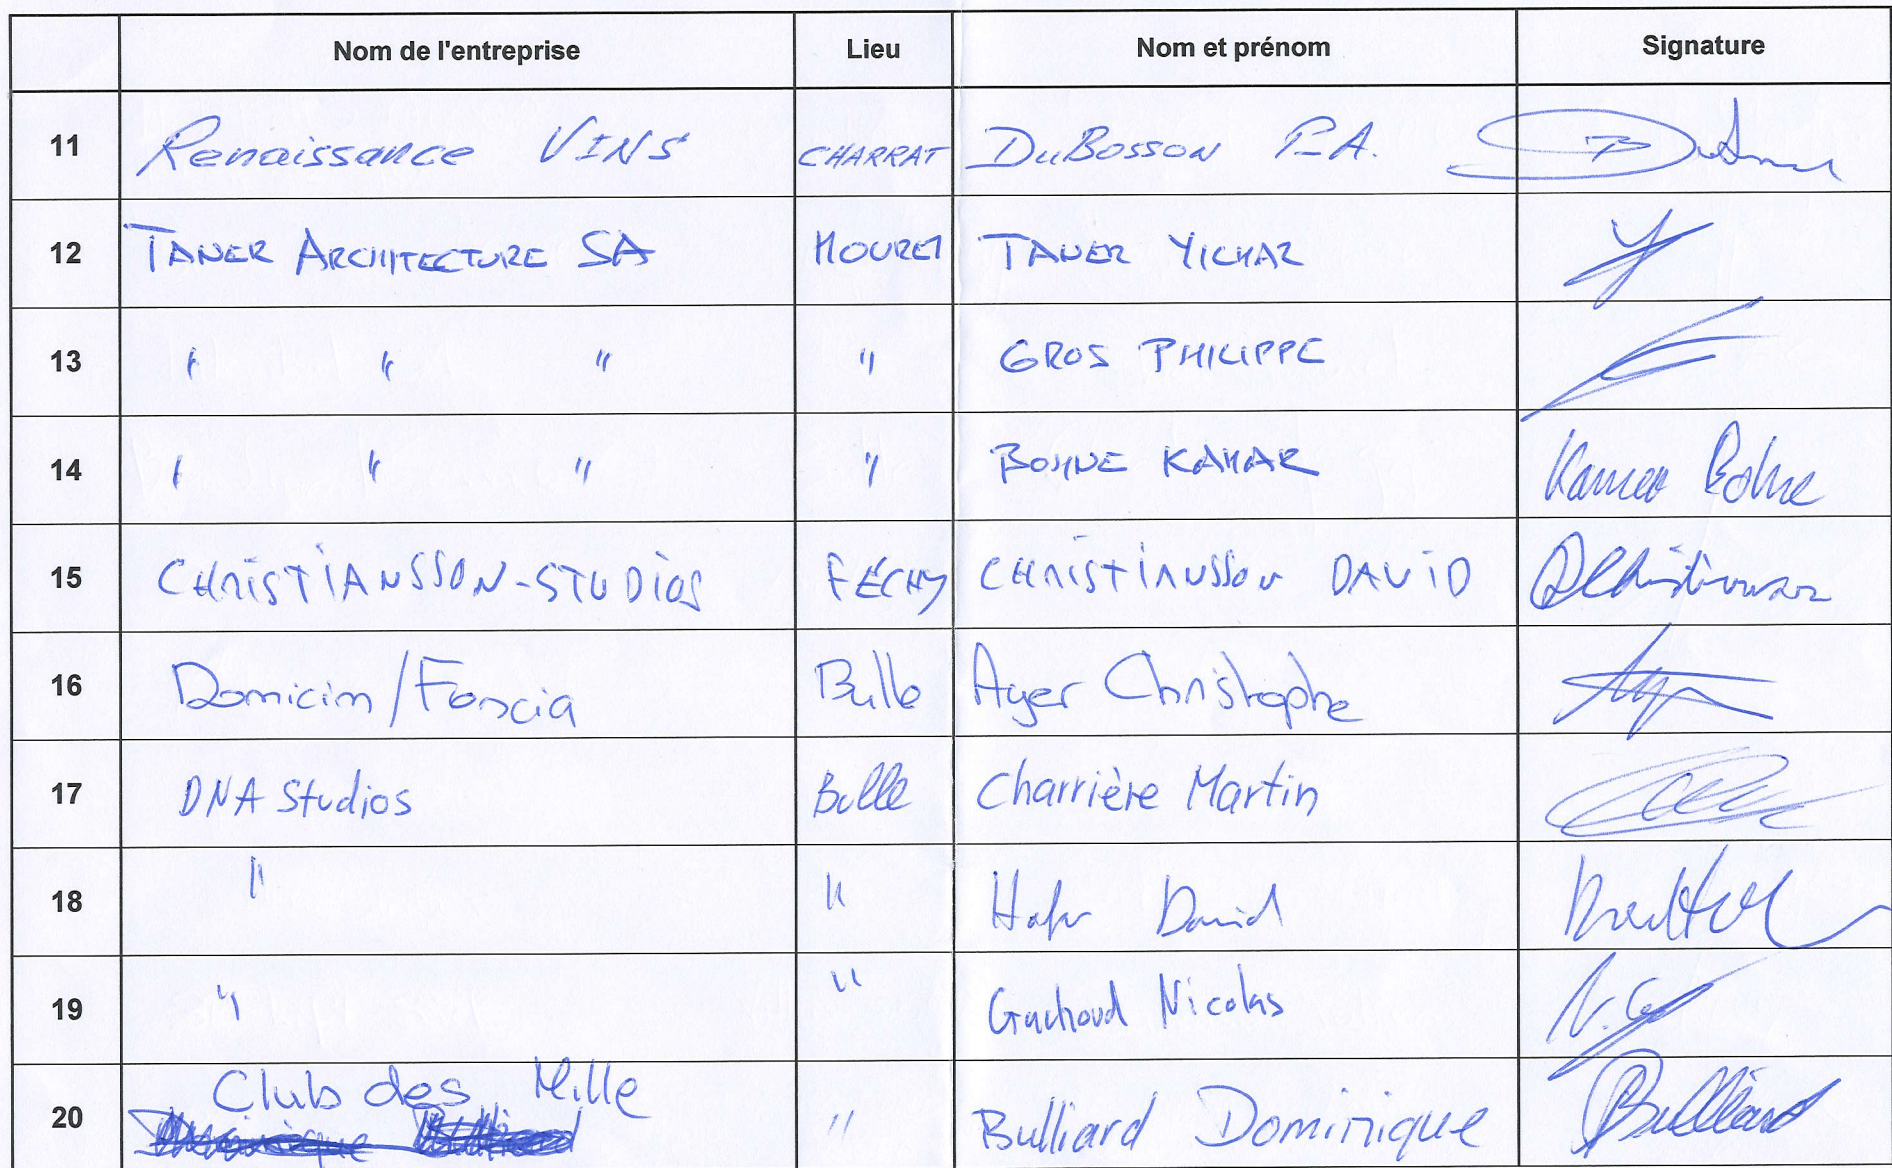 Nom de l'entreprise Lieu Nom et prénom Signature
11 Renaissance VINS CHARRAT DuBosson P-A.
12 TANER ARCHITECTURE SA MOURET TANER YILMAZ
13 " " " " GROS PHILIPPE
14 " " " " BOHNE KAMAR Kamar Bohne
15 CHRISTIANSSON-STUDIOS FÉCHY CHRISTIANSSON DAVID
16 Domicim/Foncia Bulle Ayer Christophe
17 DNA Studios Bulle Charrière Martin
18 " " David
19 " " Gachoud Nicolas N.G
20 Club des Mille " Bulliard Dominique Bulliard